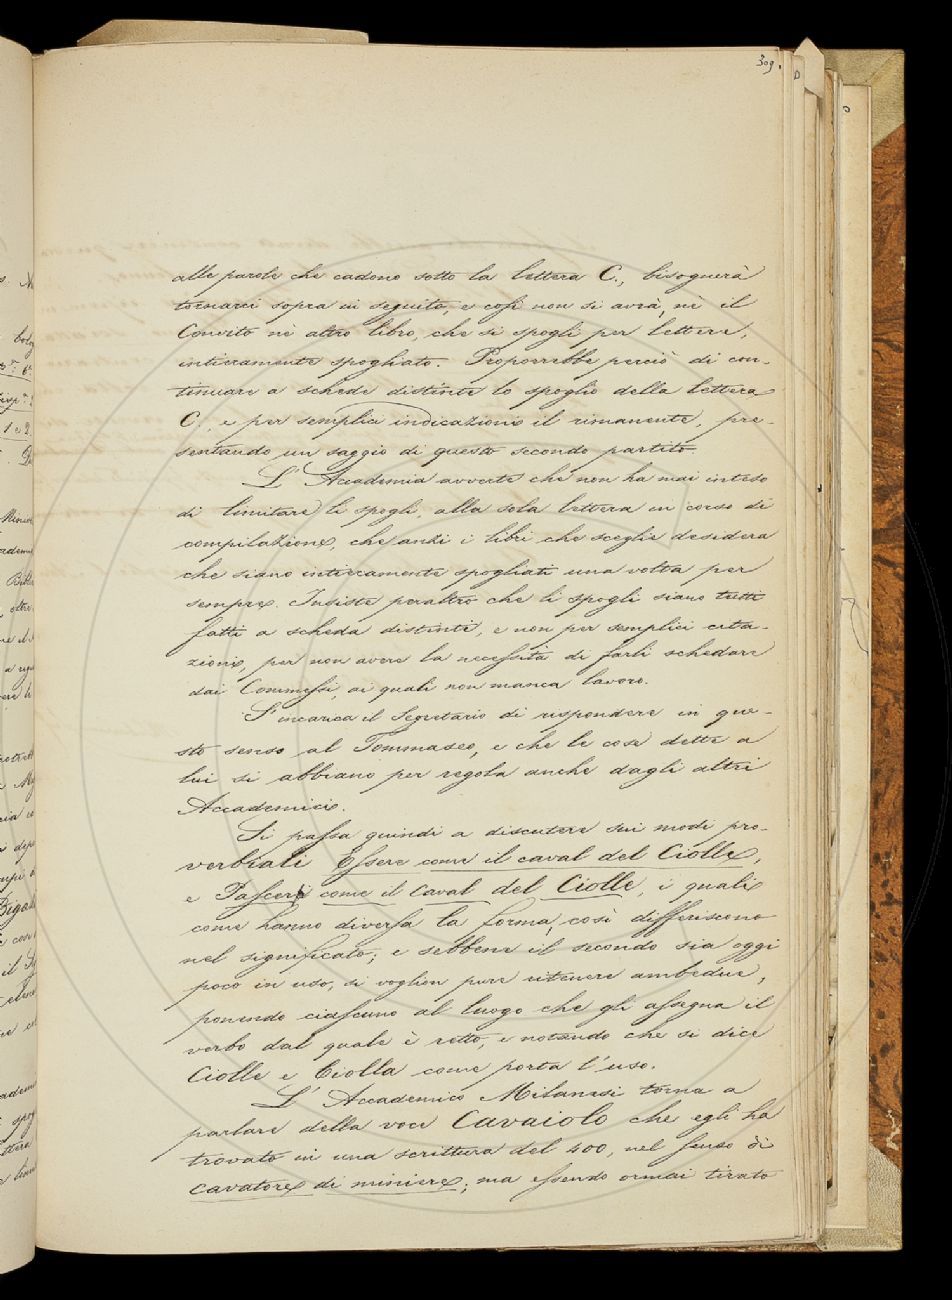 309.
alle parole che cadono sotto la lettera C., bisognerà
tornarci sopra in seguito, e così non si avrà, nè il
Convito nè altro libro, che si spogli per lettere,
intieramente spogliato. Proporrebbe perciò di con-
tinuare a schede distinte lo spoglio della lettera
C., e per semplici indicazioni il rimanente, pre-
sentando un saggio di questo secondo partito.
L'Accademia avverte che non ha mai inteso
di limitare li spogli, alla sola lettera in corso di
compilazione, che anzi i libri che sceglie desidera
che siano intieramente spogliati una volta per
sempre. Insiste peraltro che li spogli siano tutti
fatti a scheda distinti, e non per semplici cita-
zioni, per non avere la necessità di farli schedare
dai Commessi, ai quali non manca lavoro.
S'incarica il Segretario di rispondere in que-
sto senso al Tommaseo, e che le cose dette a
lui si abbiano per regola anche dagli altri
Accademici.
Si passa quindi a discutere sui modi pro-
verbiali Essere come il caval del Ciolle,
e Pascersi come il caval del Ciolle, i quali
come hanno diversa la forma, così differiscono
nel significato; e sebbene il secondo sia oggi
poco in uso, si voglion pure ritenere ambedue,
ponendo ciascuno al luogo che gli assegna il
verbo dal quale è retto, e notando che si dice
Ciolle e Ciolla come porta l'uso.
L'Accademico Milanesi torna a
parlare della voce Cavaiolo che egli ha
trovato in una scrittura del 400, nel senso di
cavatore di miniere; ma essendo ormai tirato